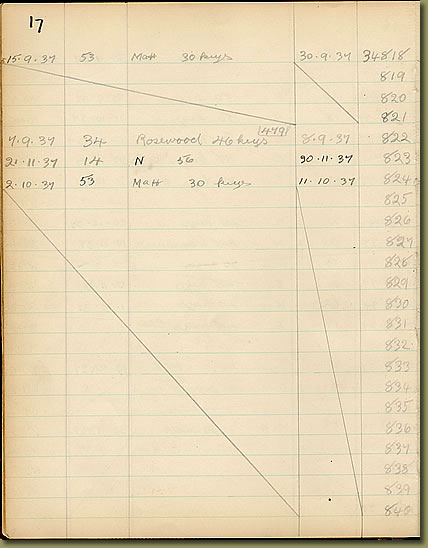 17
15.9.37 53 Matt 30 keys 30.9.37 34818
819
820
821
14791
7.9.37 34 Rosewood 46 keys 8.9.37 822
21.11.37 14 N 56 30.11.37 823
2.10.37 53 Matt 30 keys 11.10.37 824
825
826
827
828
829
830
831
832
833
834
835
836
837
838
839
840